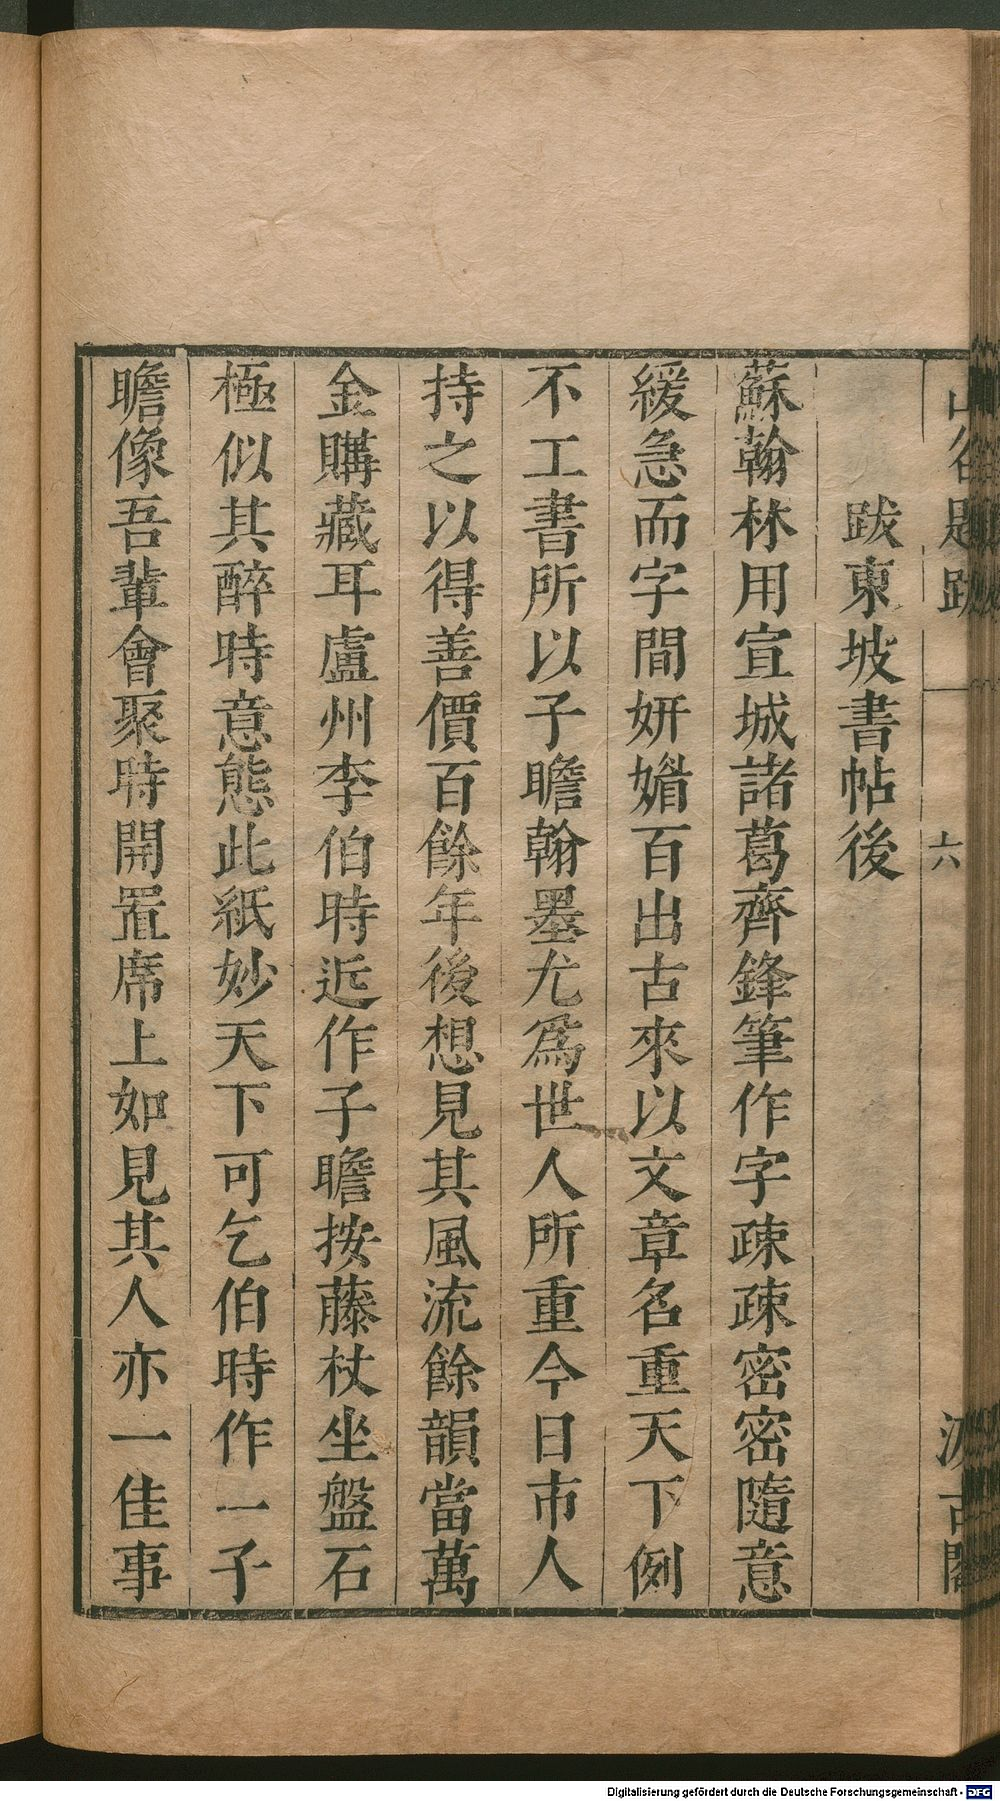 山谷題跋
六
汲古閣
跋東坡書帖後
蘇翰林用宣城諸葛齊鋒筆作字疎疎密密隨意
緩急而字間妍媚百出古來以文章名重天下例
不工書所以子瞻翰墨尤爲世人所重今日市人
持之以得善價百餘年後想見其風流餘韻當萬
金購藏耳盧州李伯時近作子瞻按藤杖坐盤石
極似其醉時意態此紙妙天下可乞伯時作一子
瞻像吾輩會聚時開置席上如見其人亦一佳事
Digitalisierung gefördert durch die Deutsche Forschungsgemeinschaft - DFG